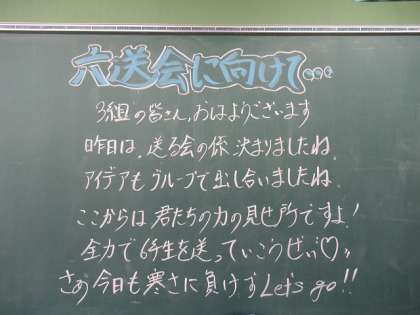 六送会に向けて…
3組の皆さん、おはようございます
昨日は、送る会の係 決まりましたね。
アイデアもグループで出し合いましたね。
ここからは君たちの力の見せ所ですよ!
全力で6年生を送っていこうぜぃ♡〃
さぁ今日も寒さに負けずLet's go!!